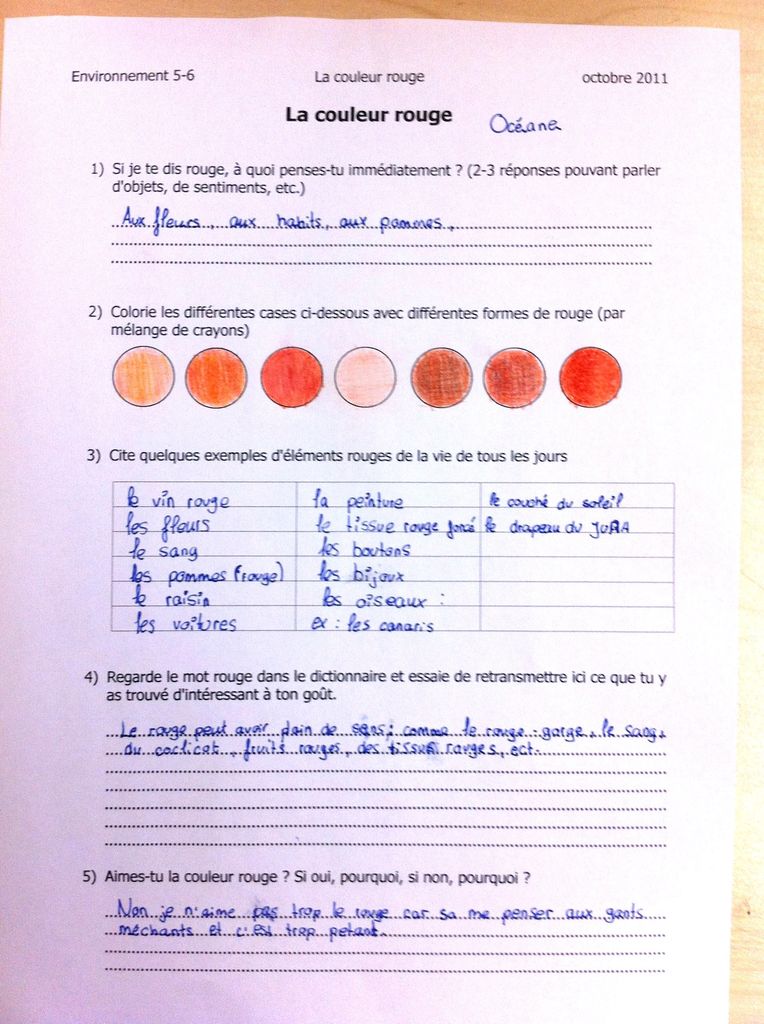 Environnement 5-6 La couleur rouge octobre 2011
La couleur rouge Océane
1) Si je te dis rouge, à quoi penses-tu immédiatement ? (2-3 réponses pouvant parler
d'objets, de sentiments, etc.)
Aux fleurs, aux habits, aux pommes,
2) Colorie les différentes cases ci-dessous avec différentes formes de rouge (par
mélange de crayons)
3) Cite quelques exemples d'éléments rouges de la vie de tous les jours
le vin rouge la peinture le couché du soleil
les fleurs le tissue rouge foncé le drapeau du JURA
le sang les boutons
les pommes (rouge) les bijoux
le raisin les oiseaux :
les voitures ex : les canaris
4) Regarde le mot rouge dans le dictionnaire et essaie de retransmettre ici ce que tu y
as trouvé d'intéressant à ton goût.
Le rouge peut avoir plain de sens; comme le rouge-gorge, le sang,
du coclicat, fruits rouges, des tissue rouges, ect.
5) Aimes-tu la couleur rouge ? Si oui, pourquoi, si non, pourquoi ?
Non je n'aime pas trop le rouge car sa me penser aux gants
méchants et c'est trop petant.